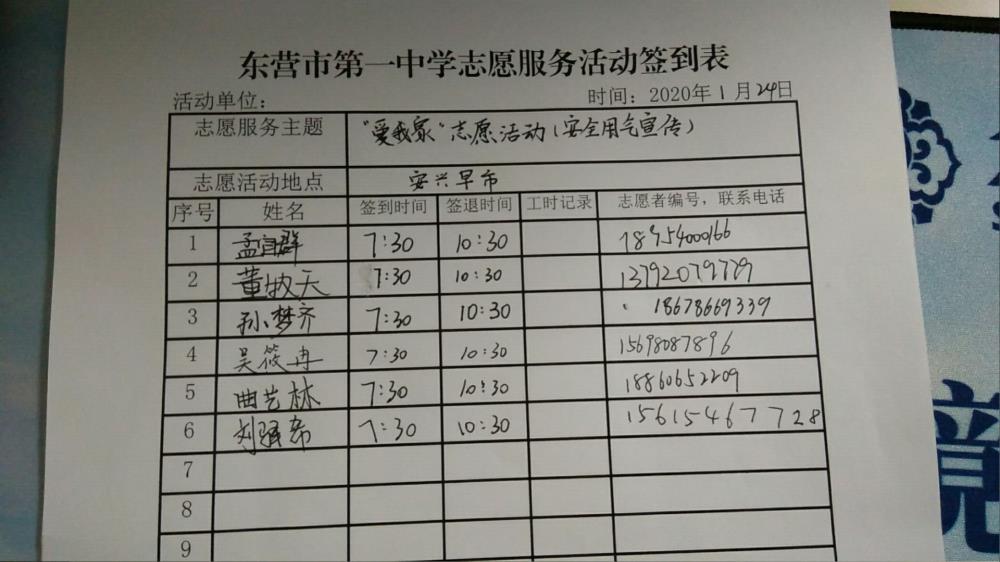 东营市第一中学志愿服务活动签到表
活动单位： 时间：2020年1月24日
志愿服务主题 "爱我家"志愿活动（安全用气宣传）
志愿活动地点 安兴早市
序号 姓名 签到时间 签退时间 工时记录 志愿者编号，联系电话
1 孟宜群 7:30 10:30 18954000166
2 董牧天 7:30 10:30 13792079779
3 孙梦齐 7:30 10:30 18678669339
4 吴筱冉 7:30 10:30 15698087896
5 曲艺林 7:30 10:30 18860652209
6 刘 7:30 10:30 15615467728
7
8
9